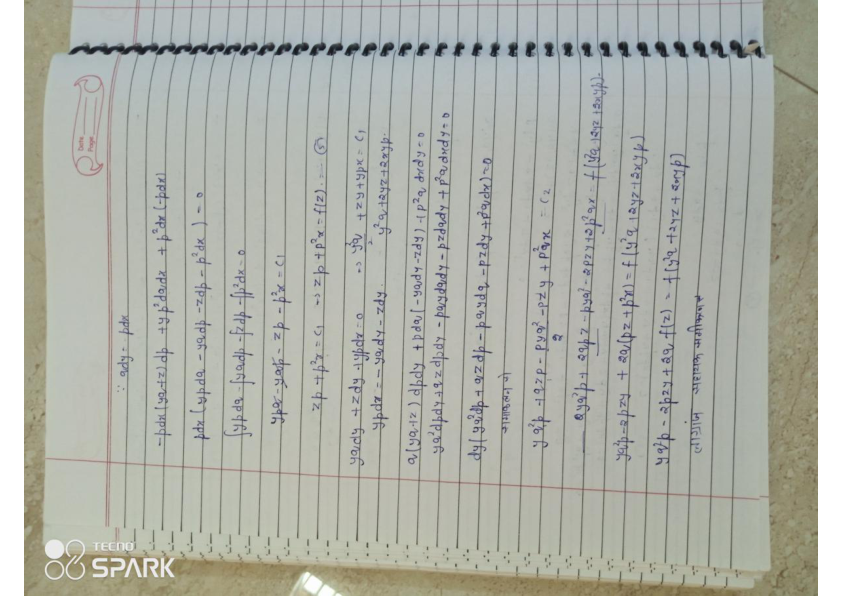 Date
Page
∵ qdy = -pdx
-pdx(yq+z)dp + yp²dqdx + p²dx(-pdx)
pdx(ypdq - yqdp - zdp - p²dx) = 0
∫ypdq - ∫yqdp - ∫zdp - ∫p²dx = 0
ypq - yqp - zp - p²x = c₁
zp + p²x = c₁ → zp + p²x = f(z) --- ⑤
yqdy + zdy + ypdx = 0 → y²q/2 + zy + ypx = c₁
ypdx = -yqdy - zdy. y²q + 2yz + 2xyp.
q(yq+z)dpdy + pdq(-yqdy - zdy) + p²q dxdy = 0
yq²dpdy + qzdpdy - pqydqdy - pzdqdy + p²q dxdy = 0
dy(yq²dp + qzdp - pqydq - pzdy + p²qdx) = 0
समाकलन से
yq²p + qzp - pyq²/2 - pzy + p²qx = c₂
2yq²p + 2qpz - pyq² - 2pzy + 2p²qx = f(y²q + 2yz + 2xyp).
yq²p - 2pzy + 2q(pz + p²x) = f(y²q + 2yz + 2xyp)
yq²p - 2pzy + 2q f(z) = f(y²q + 2yz + 2xyp)
लाग्रांज सहायक समीकरण
TECNO
SPARK